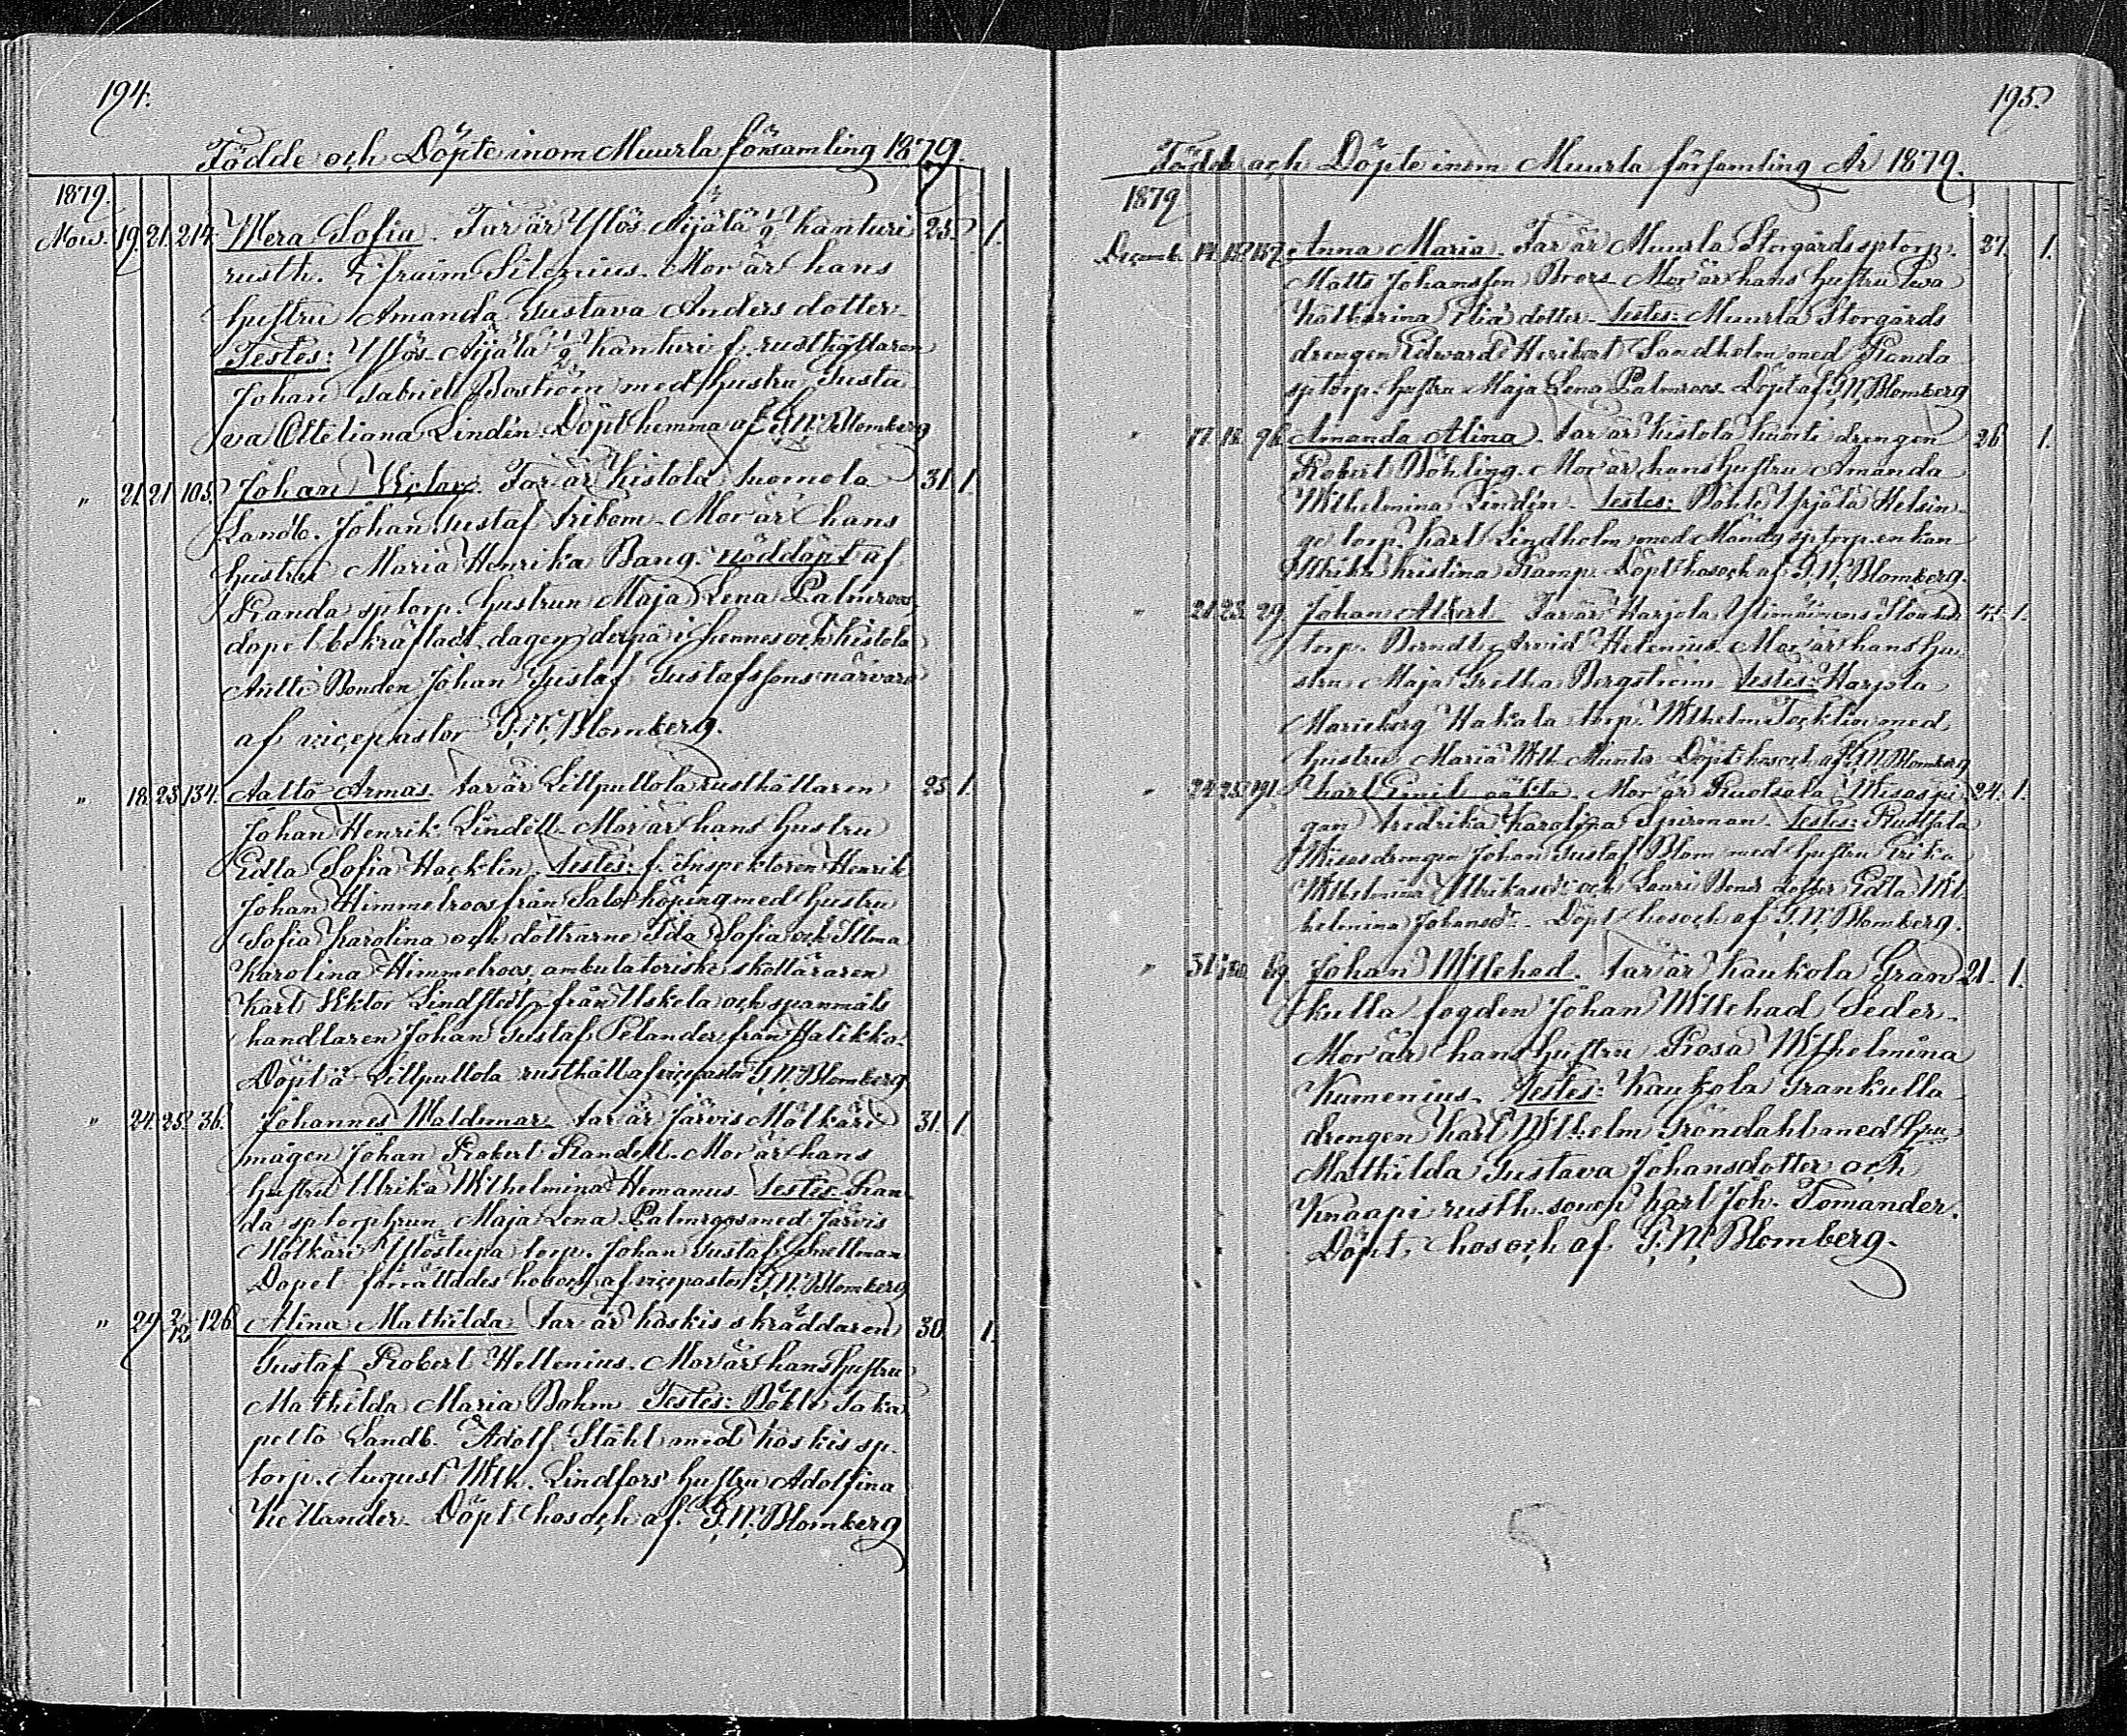 194.
Födde och Döpte inom Muurla församling 1879.
1879.
Novs. 19. 21. 214. Wera Sofia. Far är Yllös Äijälä 1/2 Kanturi 25. 1.
rusth. Efraim Silenius. Mor är hans
hustru Amanda Gustava Anders dotter.
Testes: Yllös Äijälä 1/2 Kanturi f. rusthållaren
Johan Gabriel Boström med hustru Gusta
va Otteliana Lindén. Döpt hemma af G.W. Blomberg
" 21. 21. 105. Johan Victor. Far är Kistola Tuomola 31. 1.
Landb. Johan Gustaf Fribom. Mor är hans
hustru Maria Henrika Bang. nöddöpt af
Randa sptorp. hustrun Maja Lena Palmroos,
dopet bekräftadt dagen derpå i hennes och Kistola
Antti Bonden Johan Gustaf Gustafssons närvaro
af vicepastor G.W. Blomberg.
" 18. 23. 134. Aatto Armas. Far är Lillpullola rusthållaren 25. 1.
Johan Henrik Lindell. Mor är hans hustru
Edla Sofia Hacklin. Testes: f. Inspektoren Henrik
Johan Himmelroos från Salo köping med hustru
Sofia Karolina och döttrarne Ida Sofia ochIlma
Karolina Himmelroos, ambulatoriske skolläraren
Karl Viktor Lindstedt från Uskela och spanmåls
handlaren Johan Gustaf Pelander från Halikko.
Döpt å Lillpullola rusthåll af vicepastor G.W. Blomberg.
" 24. 25. 36. Johannes Waldemar. Far är Järvis Mölkäri 31. 1.
mågen Johan Robert Randell. Mor är hans
hustru Ulrika Wilhelmina Hemanus. Testes: Ran
da sptorphrun Maja Lena Palmroos med Järvis
Mölkäri Ylöstupa torp. Johan Gustaf Snellman
Dopet förrättades hos och af vicepastor G.W. Blomberg
" 29. 2/12 126. Alina Mathilda. Far är Koskis skräddaren 30. 1.
Gustaf Robert Hellenius. Mor är hans hustru
Mathilda Maria Bohm. Testes: Böhle Taka
pelto Landb. Adolf Ståhl med Koskis sp.
torp. August Wilh. Lindfors' hustru Adolfina
Kellander. Döpt hos och af G.W. Blomberg
195.
Födde och Döpte inom Muurla församling År 1879.
1879
Decemb. 14. 15. 157. Anna Maria. Far är Muurla Storgårds sptorp. 37. 1.
Matts Johansson Brors. Mor är hans hustru Eva
Katharina Elia dotter. Testes: Muurla Storgårds
drengen Edward Heribert Sandholm med Randa
sptorp. hustru Maja Lena Palmroos. Döpt af G.W. Blomberg
" 17. 18. 96. Amanda Alina. Far är Kistola drengen 26. 1.
Robert Böhling. Mor är hans hustru Amanda
Wilhelmina Lindén. Testes: Böhle Yrjälä Helsin
ge torp. Karl Lindholm med sptorp. enkan
Ulrika Kristina Kamp. Döpt hos och af G.W. Blomberg.
" 21. 23. 29. Johan Albert. Far är Harjola
torp. Berndt Arvid Helenius. Mor är hans hu
stru Maja Gretha Bergström. Testes: Harjola
Marieberg Hakala torp. Wilhelm Tocklin med
hustru Maria Wilh. Munter. Döpt hos och af G.W. Blomberg
" 24. 25. 191. Karl Emil oäkta. Mor är Ruotsala Wisas pi 24. 1.
gan Fredrika Karolina Spirman. Testes: Ruotsala
Wisas drengen Johan Gustaf Blom med hustru Erika
Wilhelmina och Lauri Bonde dotter Edla Wil
helmina Johansdr. Döpt hos och af G.W. Blomberg.
" 31. 69. Johan Willehad. Far är Kaukola Gran 21. 1.
kulla fogden Johan Willehad Seder.
Mor är hans hustru Rosa Wilhelmina
Kumenius. Testes: Kaukola Grankulla
drengen Karl Wilhelm Gröndahl med hru
Mathilda Gustava Johansdotter och
Knaapi rusth. sonen Karl Joh. Tomander.
Döpt hos och af G.W. Blomberg.